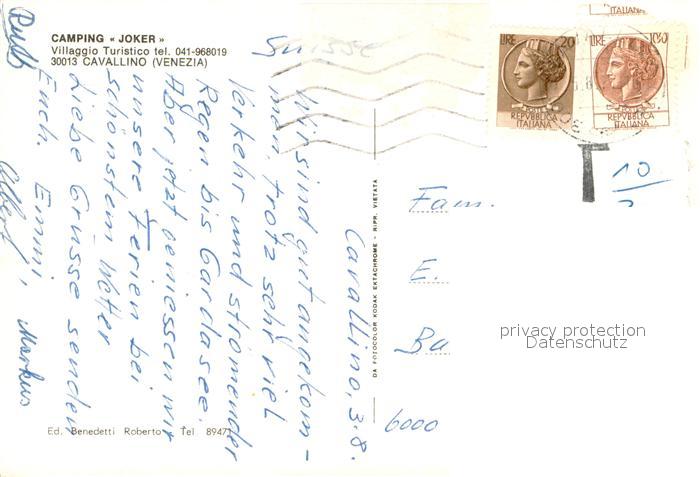 CAMPING « JOKER »
Villaggio Turistico tel. 041-968019
30013 CAVALLINO (VENEZIA)
Suisse
Cavallino, 3.8.
Wir sind gut angekom-
men, trotz sehr viel
Verkehr und strömender
Regen bis Gardasee.
Aber jetzt geniessen wir
unsere Ferien bei
schönstem Wetter
Liebe Grüsse senden
Euch. Emmi, Markus
Ruth
DA FOTOCOLOR KODAK EKTACHROME - RIPR. VIETATA
Fam.
E.
Ba
6000
LIRE 20
REPVBBLICA
ITALIANA
LIRE 100
REPVBBLICA
ITALIANA
ITALIANA
T
10
privacy protection
Datenschutz
Ed. Benedetti Roberto - Tel 89471